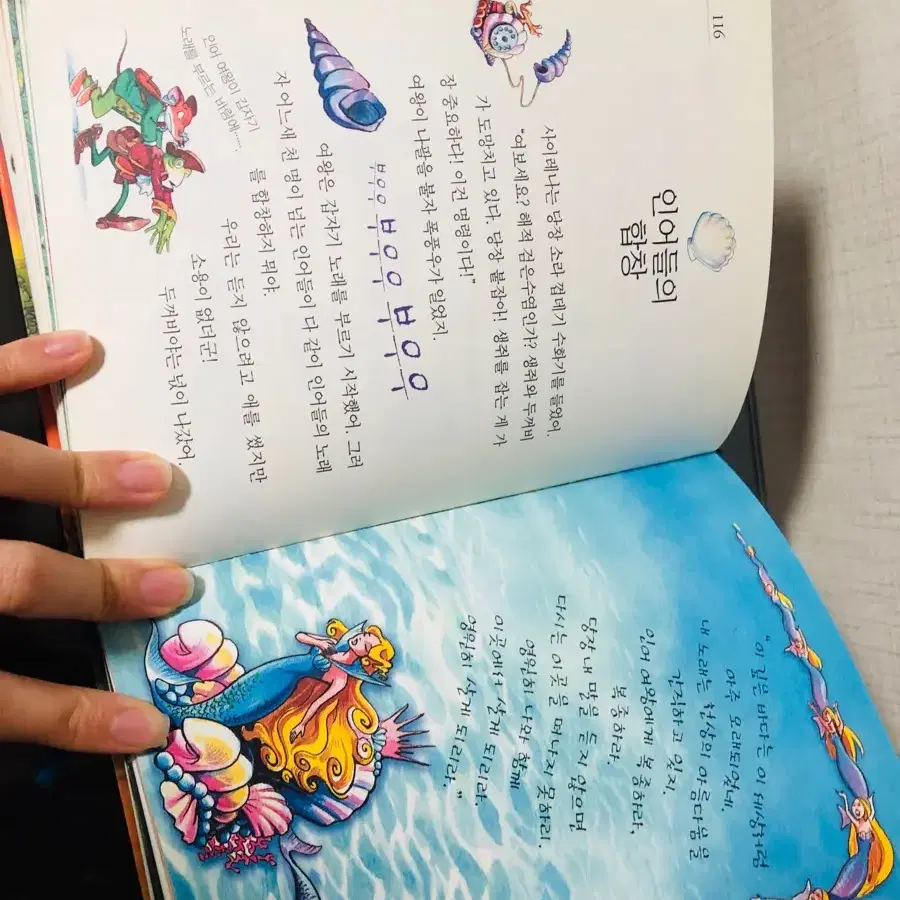 116
인어들의
합창
사이레나는 당장 소라 껍데기 수화기를 들었어.
"여보세요? 해적 검은수염인가? 생쥐와 두꺼비
가 도망치고 있다. 당장 붙잡아! 생쥐를 잡는 게 가
장 중요하다! 이건 명령이다!"
여왕이 나팔을 불자 폭풍우가 일었지.
부우우 부우우 부우우
여왕은 갑자기 노래를 부르기 시작했어. 그러
자 어느새 천 명이 넘는 인어들이 다 같이 인어들의 노래
를 합창하지 뭐야.
우리는 듣지 않으려고 애를 썼지만
소용이 없더군!
두꺼비아는 넋이 나갔어.
인어 여왕이 갑자기
노래를 부르는 바람에……
"이 깊은 바다는 이 세상처럼
아주 오래되었네,
내 노래는 천상의 아름다움을
간직하고 있지.
인어 여왕에게 복종하라,
복종하라.
당장 내 말을 듣지 않으면
다시는 이곳을 떠나지 못하리.
영원히 나와 함께
이곳에서 살게 되리라.
영원히 살게 되리라."